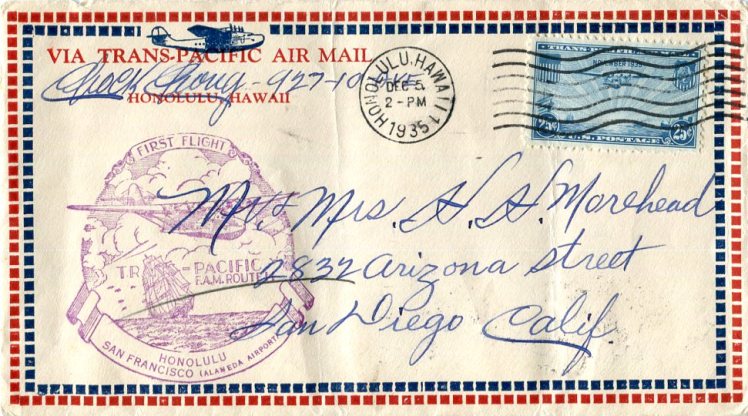 VIA TRANS-PACIFIC AIR MAIL
Chock Chong - 927-10
HONOLULU, HAWAII
HONOLULU, HAWAII 1
DEC 5
2 - PM
1935
TRANS-PACIFIC
NOVEMBER 1935
25¢ U.S. POSTAGE 25¢
FIRST FLIGHT
TR - PACIFIC
F.A.M. ROUTE
HONOLULU
SAN FRANCISCO (ALAMEDA AIRPORT
Mr. & Mrs. H. H. Morehead
2832 Arizona Street
San Diego Calif.